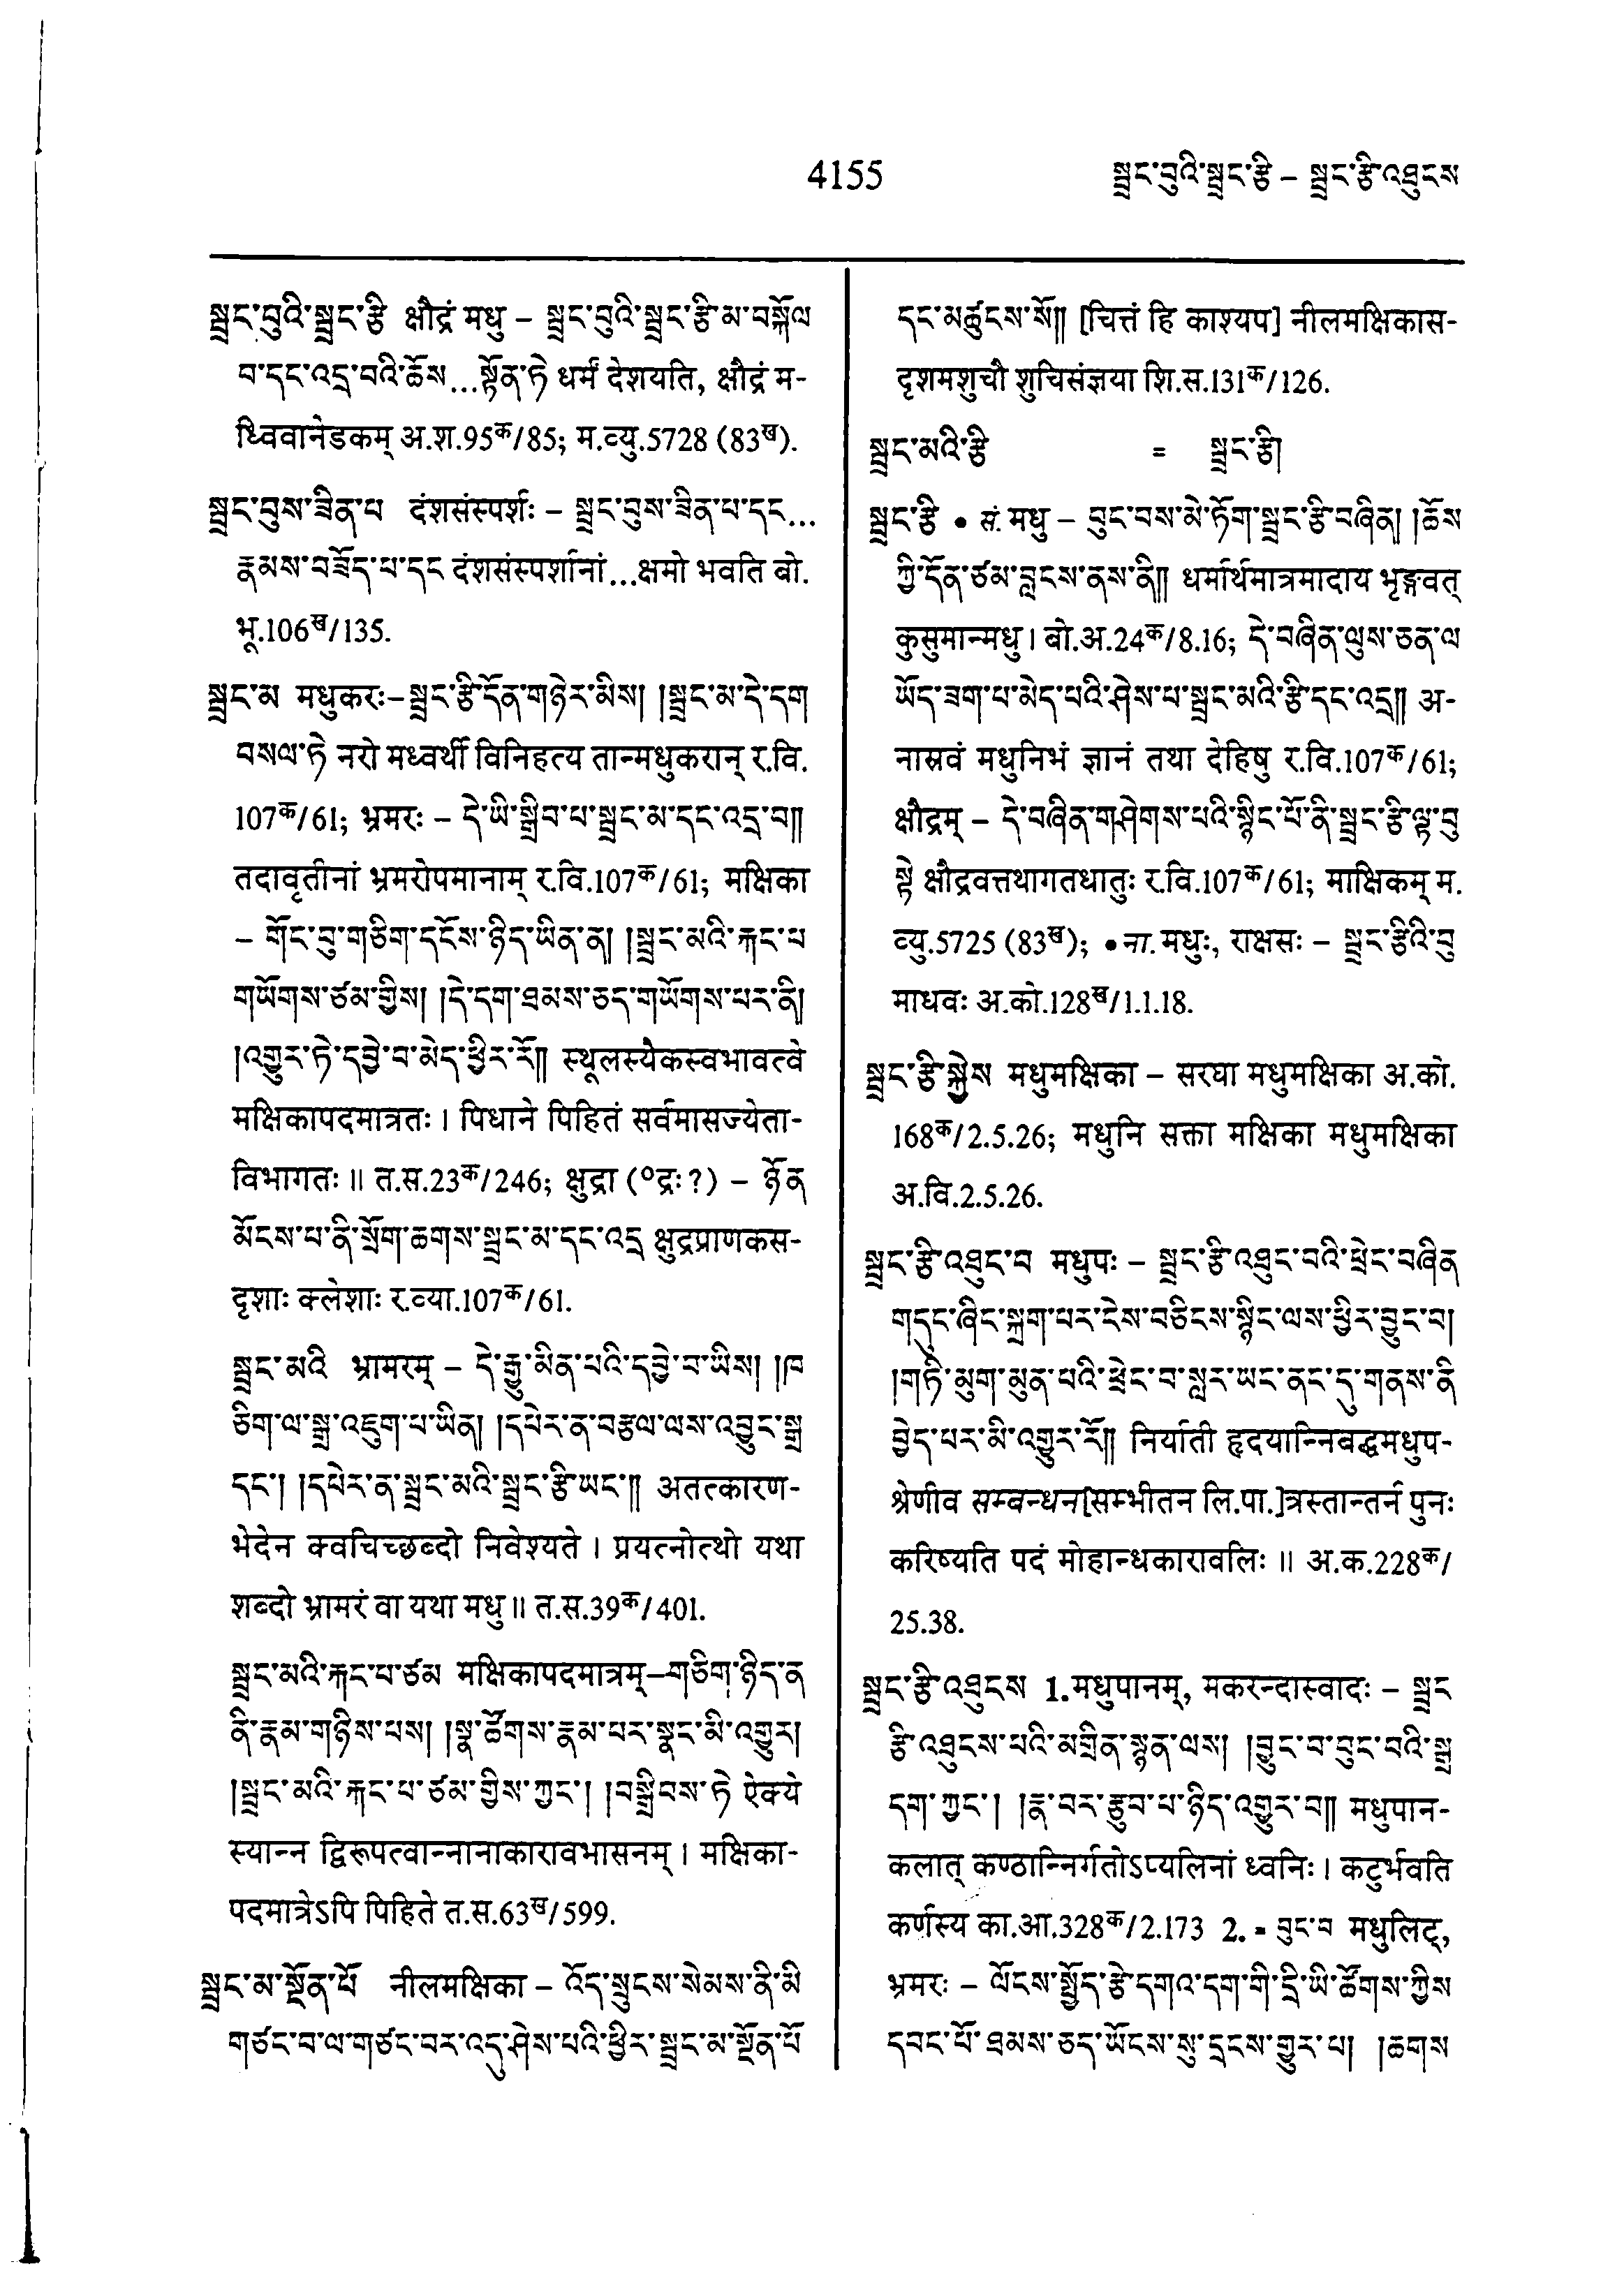 4155
སྦྲང་བུའི་སྦྲང་རྩི – སྦྲང་རྩི་འཐུངས
སྦྲང་བུའི་སྦྲང་རྩི क्षौद्रं मधु – སྦྲང་བུའི་སྦྲང་རྩི་མ་བསྐོལ
བ་དང་འདྲ་བའི་ཆོས...སྟོན་ཏེ धर्मं देशयति, क्षौद्रं म-
ध्विवानेडकम् अ.श.95क/85; म.व्यु.5728 (83ख).
སྦྲང་བུས་ཟིན་པ दंशसंस्पर्शः – སྦྲང་བུས་ཟིན་པ་དང...
རྣམས་བཟོད་པ་དང दंशसंस्पर्शानां...क्षमो भवति बो.
भू.106ख/135.
སྦྲང་མ मधुकरः–སྦྲང་རྩི་དོན་གཉེར་མིས། །སྦྲང་མ་དེ་དག
བསལ་ཏེ नरो मध्वर्थी विनिहत्य तान्मधुकरान् र.वि.
107क/61; भ्रमरः – དེ་ཡི་སྒྲིབ་པ་སྦྲང་མ་དང་འདྲ་བ།།
तदावृतीनां भ्रमरोपमानाम् र.वि.107क/61; मक्षिका
– གོང་བུ་གཅིག་དངོས་ཉིད་ཡིན་ན། །སྦྲང་མའི་རྐང་པ
གཡོགས་ཙམ་གྱིས། །དེ་དག་ཐམས་ཅད་གཡོགས་པར་ནི།
།འགྱུར་ཏེ་དབྱེ་བ་མེད་ཕྱིར་རོ།། स्थूलस्यैकस्वभावत्वे
मक्षिकापदमात्रतः । पिधाने पिहितं सर्वमासज्येता-
विभागतः ॥ त.स.23क/246; क्षुद्रा (०द्रः?) – ཉོན
མོངས་པ་ནི་སྲོག་ཆགས་སྦྲང་མ་དང་འདྲ क्षुद्रप्राणकस-
दृशाः क्लेशाः र.व्या.107क/61.
སྦྲང་མའི भ्रामरम् – དེ་རྒྱུ་མིན་པའི་དབྱེ་བ་ཡིས། །ཁ
ཅིག་ལ་སྒྲ་འཇུག་པ་ཡིན། །དཔེར་ན་བརྩལ་ལས་འབྱུང་སྒྲ
དང་། །དཔེར་ན་སྦྲང་མའི་སྦྲང་རྩི་ཡང་།། अतत्कारण-
भेदेन क्वचिच्छब्दो निवेश्यते । प्रयत्नोत्थो यथा
शब्दो भ्रामरं वा यथा मधु ॥ त.स.39क/401.
སྦྲང་མའི་རྐང་པ་ཙམ मक्षिकापदमात्रम्–གཅིག་ཉིད་ན
ནི་རྣམ་གཉིས་པས། །སྣ་ཚོགས་རྣམ་པར་སྣང་མི་འགྱུར།
།སྦྲང་མའི་རྐང་པ་ཙམ་གྱིས་ཀྱང་། །བསྒྲིབས་ཏེ ऐक्ये
स्यान्न द्विरूपत्वान्नानाकारावभासनम् । मक्षिका-
पदमात्रेऽपि पिहिते त.स.63ख/599.
སྦྲང་མ་སྔོན་པོ नीलमक्षिका – འོད་སྲུངས་སེམས་ནི་མི
གཙང་བ་ལ་གཙང་བར་འདུ་ཤེས་པའི་ཕྱིར་སྦྲང་མ་སྔོན་པོ
དང་མཚུངས་སོ།། [चित्तं हि काश्यप] नीलमक्षिकास-
दृशमशुचौ शुचिसंज्ञया शि.स.131क/126.
སྦྲང་མའི་རྩི = སྦྲང་རྩི།
སྦྲང་རྩི • सं. मधु – བུང་བས་མེ་ཏོག་སྦྲང་རྩི་བཞིན། །ཆོས
ཀྱི་དོན་ཙམ་བླངས་ནས་ནི།། धर्मार्थमात्रमादाय भृङ्गवत्
कुसुमान्मधु । बो.अ.24क/8.16; དེ་བཞིན་ལུས་ཅན་ལ
ཡོད་ཟག་པ་མེད་པའི་ཤེས་པ་སྦྲང་མའི་རྩི་དང་འདྲ།། अ-
नास्रवं मधुनिभं ज्ञानं तथा देहिषु र.वि.107क/61;
क्षौद्रम् – དེ་བཞིན་གཤེགས་པའི་སྙིང་པོ་ནི་སྦྲང་རྩི་ལྟ་བུ
སྟེ क्षौद्रवत्तथागतधातुः र.वि.107क/61; माक्षिकम् म.
व्यु.5725 (83ख); • ना. मधुः, राक्षसः – སྦྲང་རྩིའི་བུ
माधवः अ.को.128ख/1.1.18.
སྦྲང་རྩི་སྐྱེས मधुमक्षिका – सरघा मधुमक्षिका अ.को.
168क/2.5.26; मधुनि सक्ता मक्षिका मधुमक्षिका
अ.वि.2.5.26.
སྦྲང་རྩི་འཐུང་བ मधुपः – སྦྲང་རྩི་འཐུང་བའི་ཕྲེང་བཞིན
གདུང་ཞིང་སྐྲག་པར་ངེས་བཅིངས་སྙིང་ལས་ཕྱིར་བྱུང་བ།
།གཏི་མུག་མུན་པའི་ཕྲེང་བ་སླར་ཡང་ནང་དུ་གནས་ནི
བྱེད་པར་མི་འགྱུར་རོ།། निर्याती हृदयान्निबद्धमधुप-
श्रेणीव सम्बन्धन[सम्भीतन लि.पा.]त्रस्तान्तर्न पुनः
करिष्यति पदं मोहान्धकारावलिः ॥ अ.क.228क/
25.38.
སྦྲང་རྩི་འཐུངས 1.मधुपानम्, मकरन्दास्वादः – སྦྲང
རྩི་འཐུངས་པའི་མགྲིན་སྙན་ལས། །བྱུང་བ་བུང་བའི་སྒྲ
དག་ཀྱང་། །རྣ་བར་རྩུབ་པ་ཉིད་འགྱུར་བ།། मधुपान-
कलात् कण्ठान्निर्गतोऽप्यलिनां ध्वनिः । कटुर्भवति
कर्णस्य का.आ.328क/2.173 2. = བུང་བ मधुलिट्,
भ्रमरः – ལོངས་སྤྱོད་རྩེ་དགའ་དག་གི་དྲི་ཡི་ཚོགས་ཀྱིས
དབང་པོ་ཐམས་ཅད་ཡོངས་སུ་དྲངས་གྱུར་པ། །ཆགས